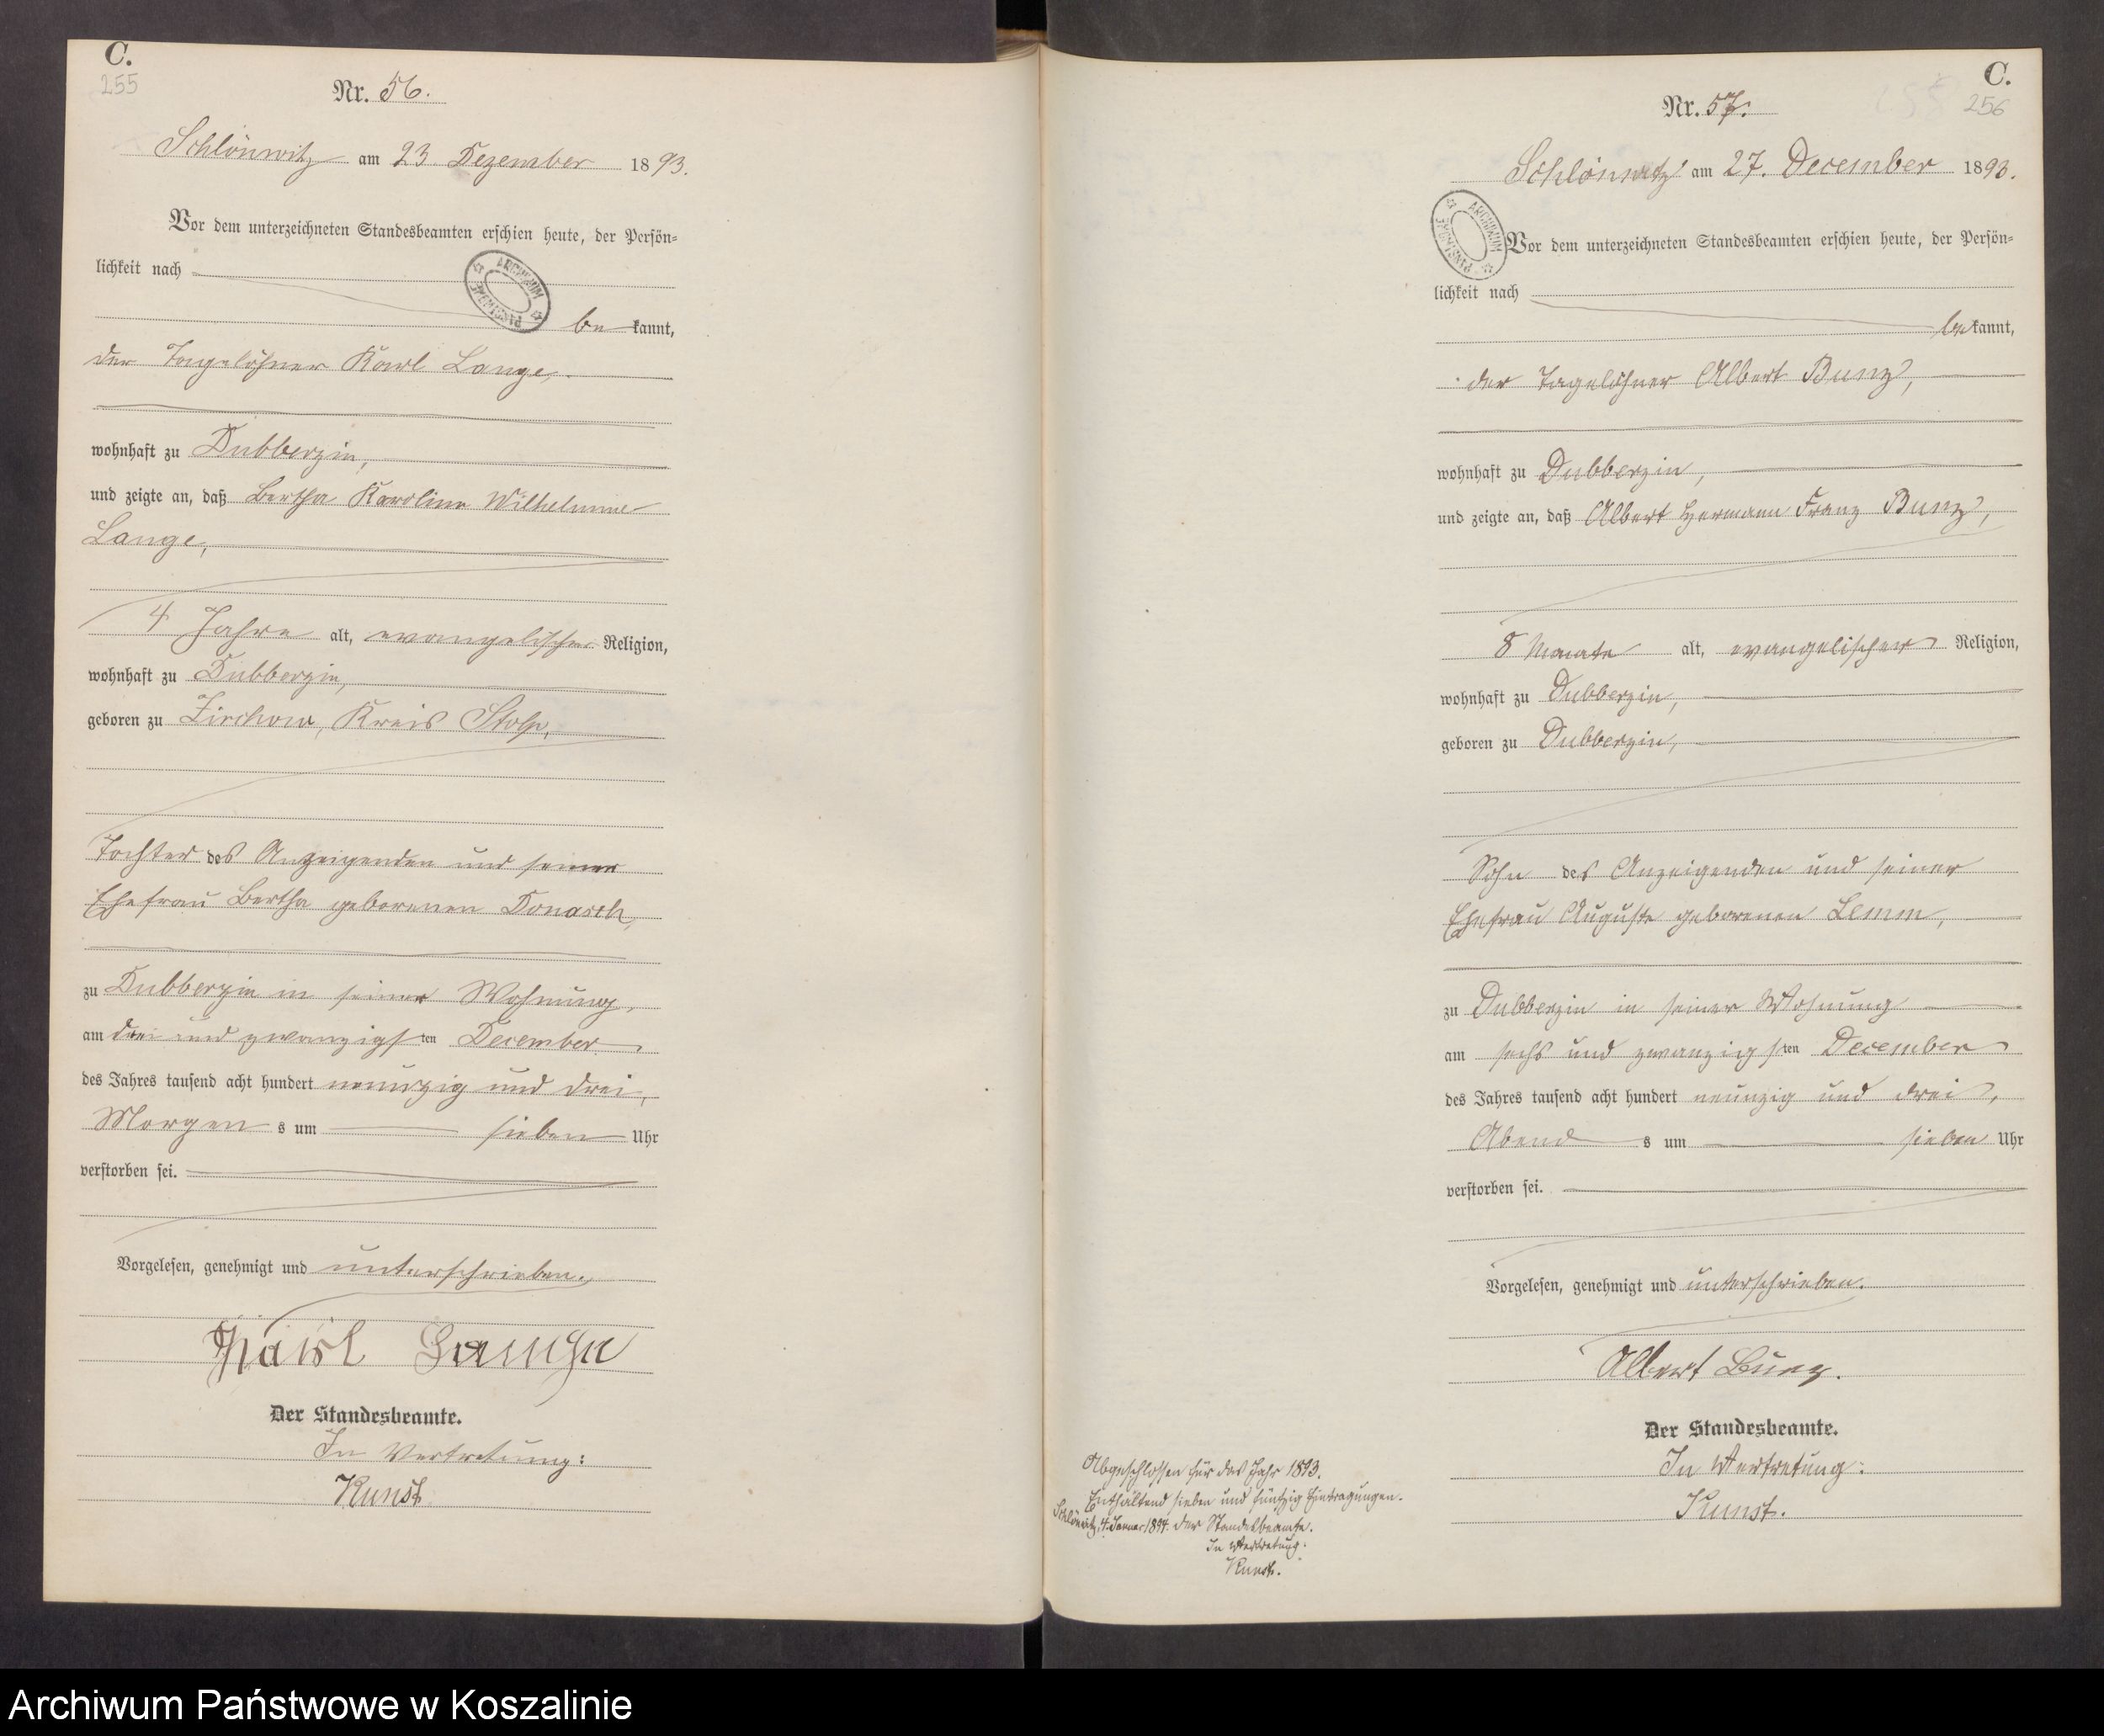 C.
255
Nr. 56.
Schlönwitz am 23 Dezember 1893.
Vor dem unterzeichneten Standesbeamten erschien heute, der Persön=
lichkeit nach
ARCHIWUM PAŃSTWOWE
be kannt,
der Tagelöhner Karl Lange,
wohnhaft zu Dubberzin,
und zeigte an, daß Bertha Karoline Wilhelmine
Lange,
4 Jahre alt, evangelischer Religion,
wohnhaft zu Dubberzin,
geboren zu Zirchow, Kreis Stolp,
Tochter des Anzeigenden und seiner
Ehefrau Bertha geborenen Donasch,
zu Dubberzin in seiner Wohnung,
am drei und zwanzigsten December
des Jahres tausend acht hundert neunzig und drei,
Morgen s um sieben Uhr
verstorben sei.
Vorgelesen, genehmigt und unterschrieben.
Karl Lange
Der Standesbeamte.
In Vertretung:
Kunst
C.
256
Nr. 57.
Schlönwitz am 27. December 1893.
ARCHIWUM PAŃSTWOWE
Vor dem unterzeichneten Standesbeamten erschien heute, der Persön=
lichkeit nach
be kannt,
der Tagelöhner Albert Bunz,
wohnhaft zu Dubberzin,
und zeigte an, daß Albert Hermann Franz Bunz,
8 Monate alt, evangelischer Religion,
wohnhaft zu Dubberzin,
geboren zu Dubberzin,
Sohn des Anzeigenden und seiner
Ehefrau Auguste geborenen Lemm,
zu Dubberzin in seiner Wohnung
am sechs und zwanzigsten December
des Jahres tausend acht hundert neunzig und drei,
Abend s um sieben Uhr
verstorben sei.
Vorgelesen, genehmigt und unterschrieben.
Albert Bunz.
Der Standesbeamte.
In Vertretung:
Kunst.
Abgeschlossen für das Jahr 1893.
Enthaltend sieben und fünfzig Eintragungen.
Schlönwitz, 4. Januar 1894. Der Standesbeamte.
In Vertretung:
Kunst.
Archiwum Państwowe w Koszalinie